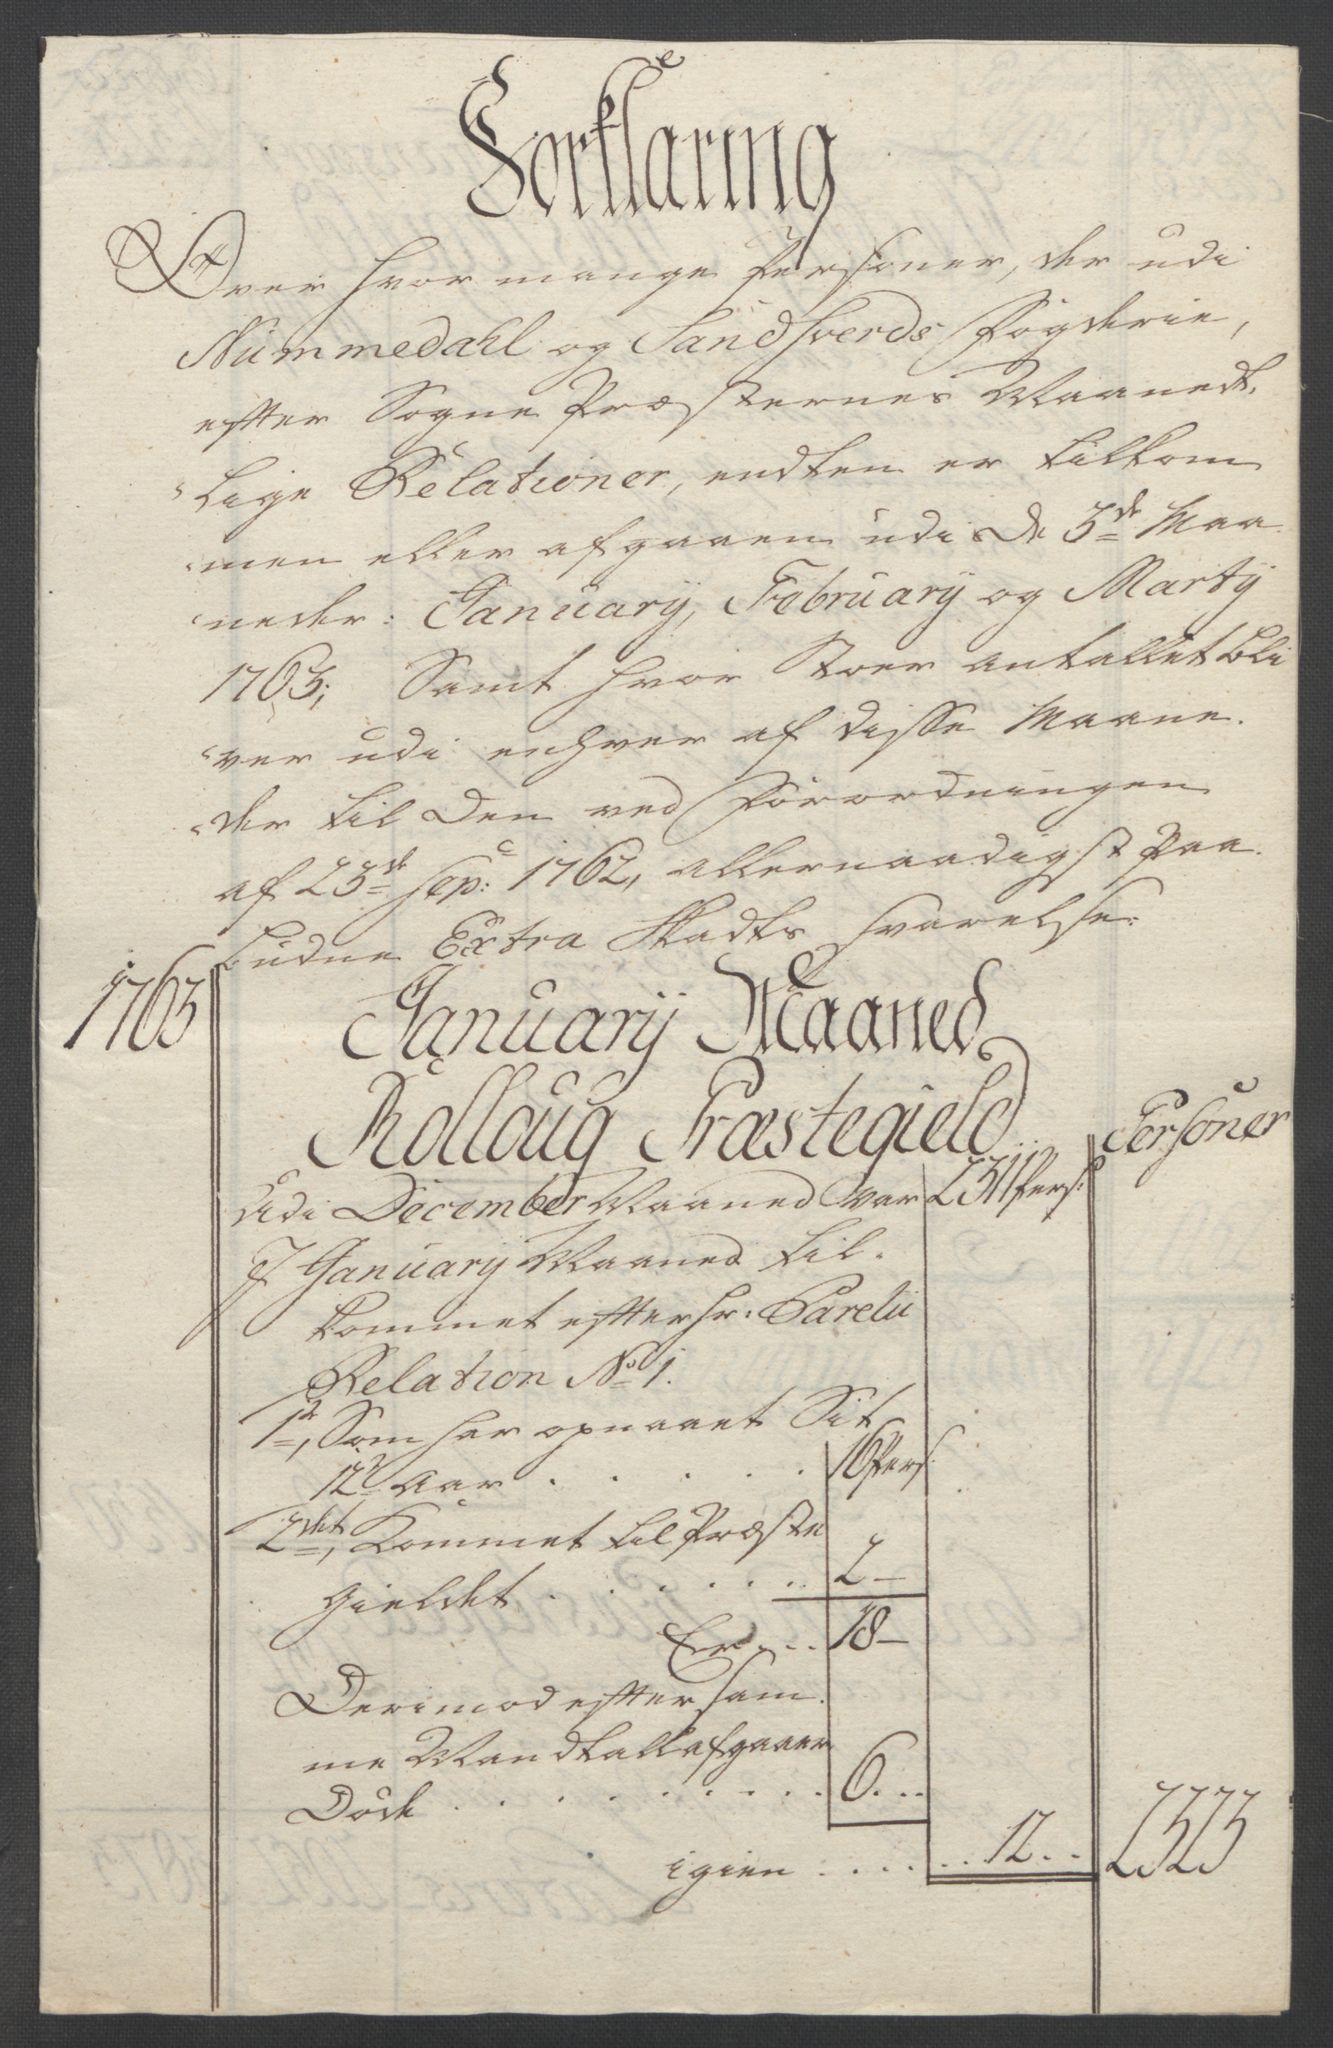 Forklaring
Over hvor mange Personer, der udi
Nummedahl og Sandsverds Fogderie,
efter Sogne Præsternes Maanedt,
lige Relationer, endten er tilkom
men eller afgaaen udi de 3de Maa
neder: January, February og Martÿ
1763; Samt hvor Stoer antallet bli
ver udi enhver af disse Maane.
der til Den ved Forordningen
af 23de Sep: 1762, allernaadigst Paa.
budne Extra Skadts Svarelse:
1763 January Maaned
Rolloug Præstegield Personer
Udi December Maaned var 2311 Pers:
J January Maaned til.
kommet efter Hr: Parelii
Relation No 1.
1te, Som har opnaaet Sit
12te Aar . . . . . 16 Pers.
2det, Kommet til Præste
Gieldet . . . . . . 2 —
Er . . . 18 —
Derimod efter Sam.
me Mandtall afgaaen
Døde . . . . . . . . . 6 . . .
igien . . . . . . . 12 . . 2323